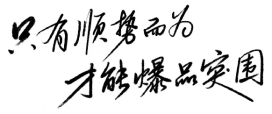 只有顺势而为
才能爆品突围